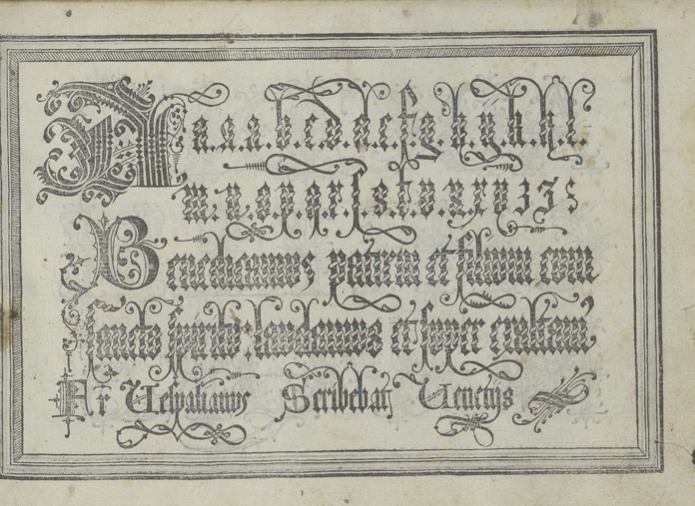 A.a.a.a.b.c.d.d.e.f.g.h.y.k.l.
m.n.o.p.q.r.ſ.s.t.v.x.y
Benedicamus patrem et filium cum
sancto spiritu: laudemus et super exaltem
Fr Uespasianus Scribebat Uenetijs